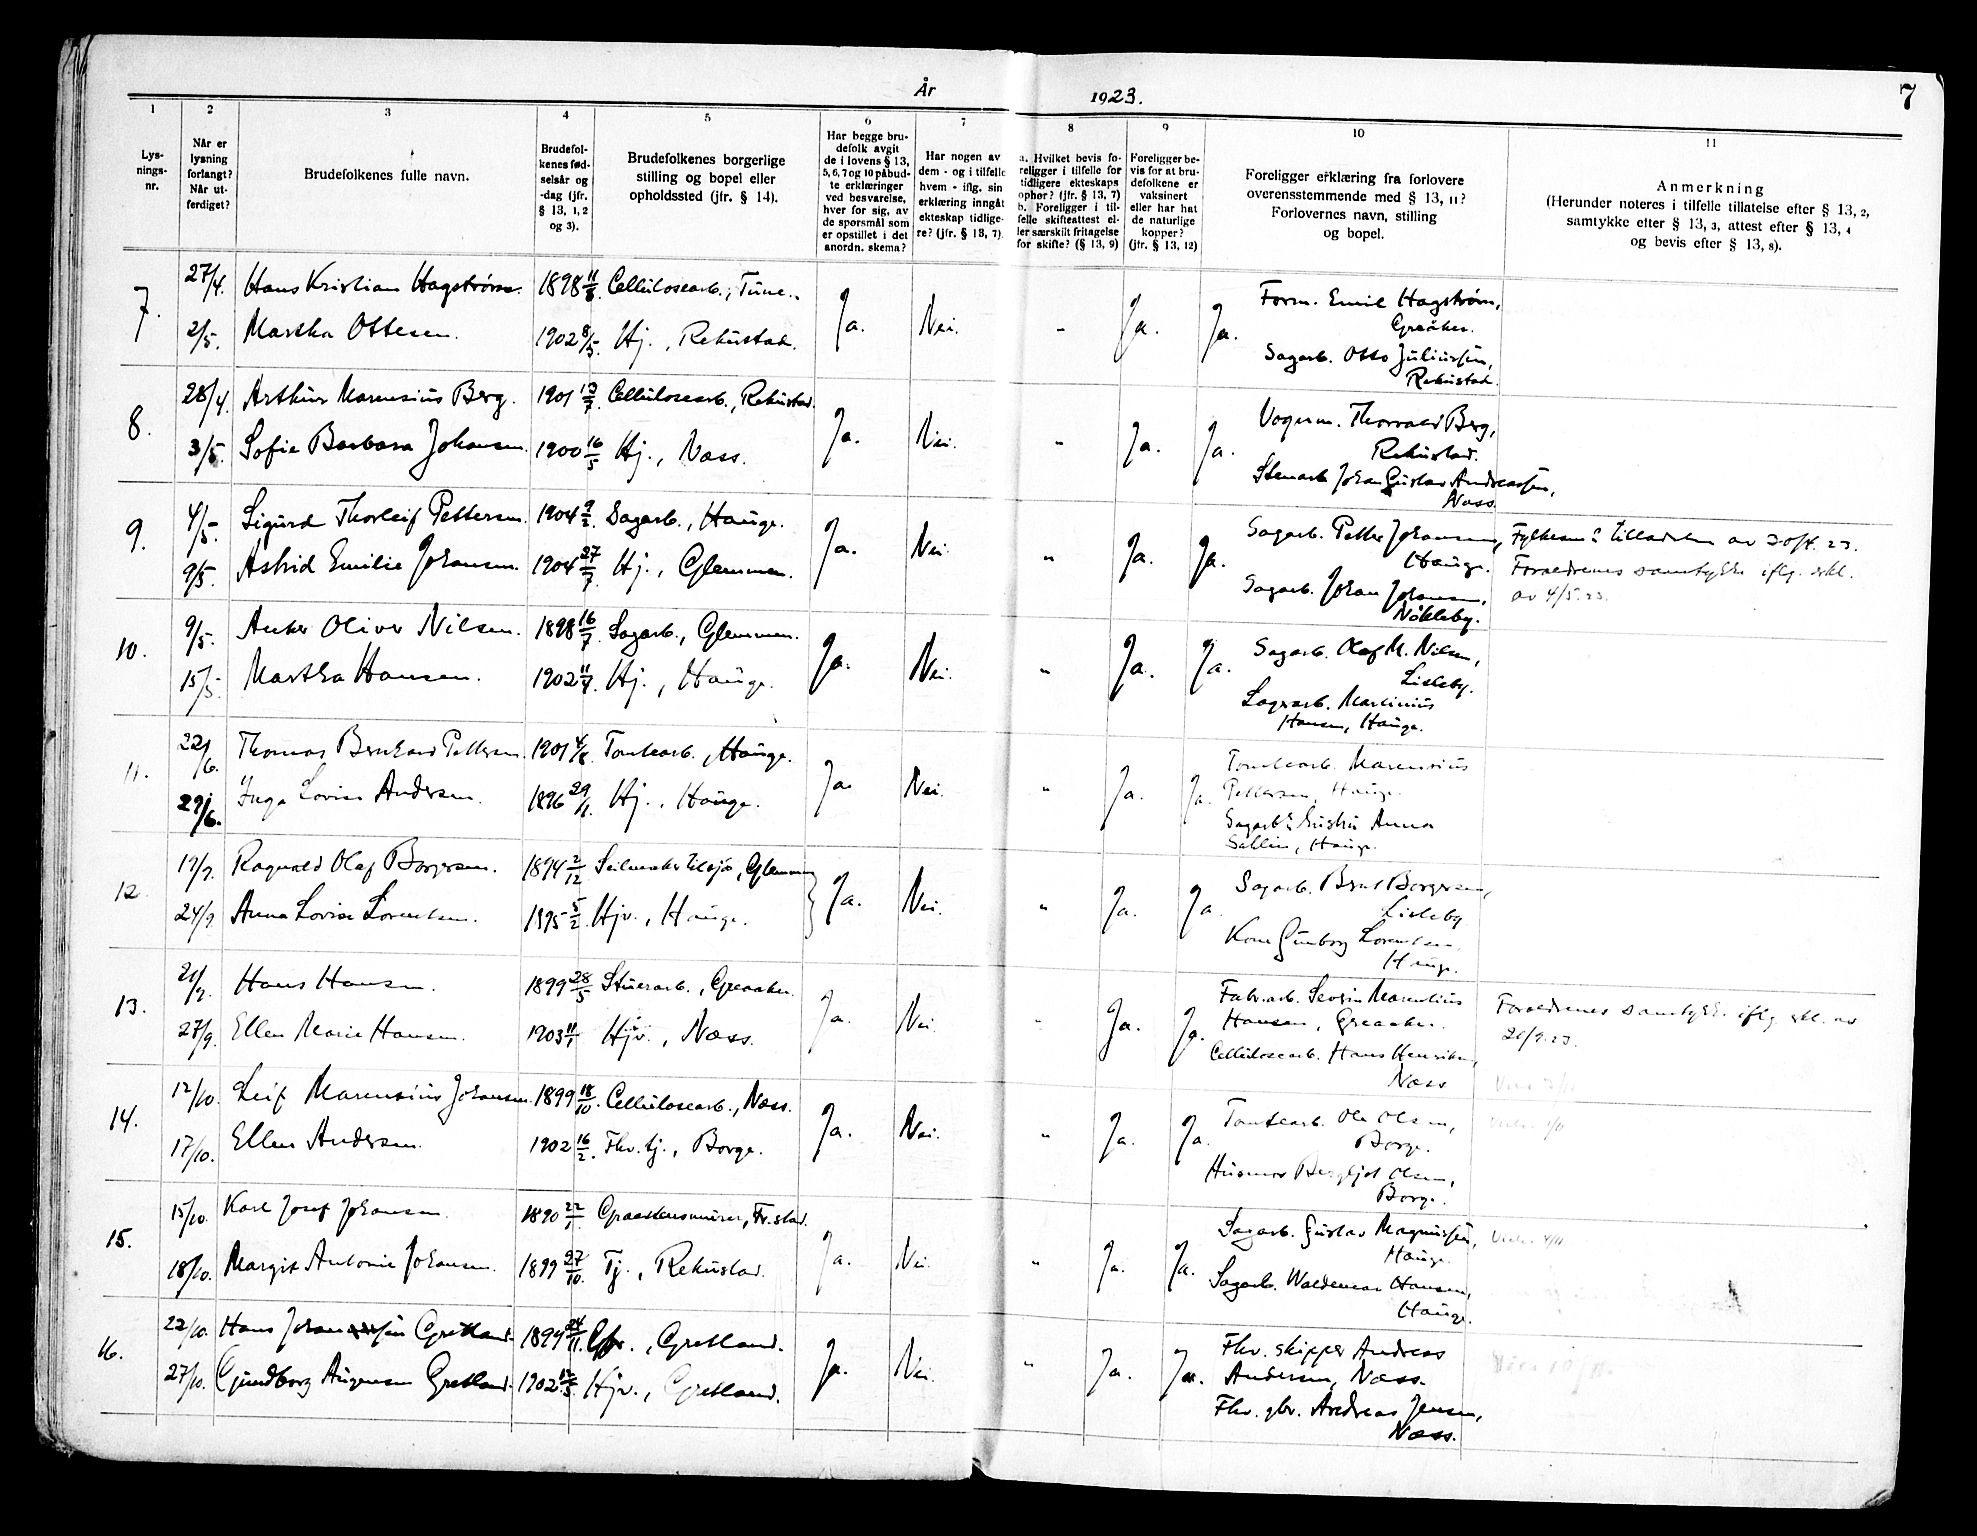 År 1923.
7
1 2 3 4 5 6 7 8 9 10 11
Lys-
nings-
nr.
Når er
lysning
forlangt?
Når ut-
ferdiget?
Brudefolkenes fulle navn.
Brudefol-
kenes fød-
selsår og
-dag (jfr.
§ 13, 1, 2
og 3).
Brudefolkenes borgerlige
stilling og bopel eller
opholdssted (jfr. § 14).
Har begge bru-
defolk avgit
de i lovens § 13,
5, 6, 7 og 10 påbud-
te erklæringer
ved besvarelse,
hver for sig, av
de spørsmål som
er opstillet i det
anordn. skema?
Har nogen av
dem - og i tilfelle
hvem - iflg. sin
erklæring inngåt
ekteskap tidlige-
re? (jfr. § 13, 7).
a. Hvilket bevis fo-
religger i tilfelle for
tidligere ekteskaps
ophør? (jfr. § 13, 7)
b. Foreligger i til-
felle skifteattest el-
ler særskilt fritagelse
for skifte? (§ 13, 9)
Foreligger be-
vis for at bru-
defolkene er
vaksinert
eller har hat
de naturlige
kopper?
(jfr. § 13, 12)
Foreligger erklæring fra forlovere
overensstemmende med § 13, 11?
Forlovernes navn, stilling
og bopel.
Anmerkning
(Herunder noteres i tilfelle tillatelse efter § 13, 2,
samtykke efter § 13, 3, attest efter § 13, 4
og bevis efter § 13, 8).
7. 27/4. Hans Kristian Hagstrøm. 1898 11/8. Cellulosearb., Tune.
2/5. Martha Ottesen. 1902 8/5. Hj., Rekustad.
Ja. Nei. " Ja. Ja.
Form. Emil Hagstrøm,
Greåker.
Sagarb. Otto Juliussen,
Rekustad.
8. 28/4. Arthur Marensius Berg. 1901 /7. Cellulosearb., Rekustad.
3/5. Sofie Barbara Johansen. 1900 16/5 Hj., Næss.
Ja. Nei. " Ja. Ja.
Vognm. Thorvald Berg,
Rekustad.
Stenarb. Johan Gustav Andreassen,
Næss
9. 4/5. Sigurd Thorleif Pettersen. 1904 9/2. Sagarb., Hauge.
9/5. Astrid Emilie Johansen. 1904 27/7. Hj., Glemmen.
Ja. Nei. " Ja. Ja.
Sagarb. Petter Johansen,
Hauge.
Sagarb. Johan Johansen,
Nökleby.
Fylkesm. tilladelse av 30/4. 23.
Foraeldrenes samtykke iflg. erkl.
av 4/5. 23.
10. 9/5. Anker Oliver Nilsen. 1898 16/7. Sagarb., Glemmen.
15/5. Martha Hansen. 1902 11/4. Hj., Hauge.
Ja. Nei. " Ja. Ja.
Sagarb. Olaf M. Nilsen,
Lisleby.
Sagarb. Martinius
Hansen, Hauge.
11. 22/6. Thomas Bernhard Pettersen. 1901 4/8. Tomtearb., Hauge.
29/6. Inga Lovise Andersen. 1896 29/1. Hj., Hauge.
Ja. Nei. " Ja. Ja.
Tomtearb. Marensius
Pettersen, Hauge.
Sagarb. hustru Anna
Sahlin, Hauge.
12. 19/9. Ragnvald Olaf Borgersen. 1894 2/12 Seilmaker tilsjø, Glemmen
24/9. Anna Lovise Lorentsen. 1895 5/2 Hjv., Hauge.
Ja. Nei. " Ja. Ja.
Sagarb. Bernt Borgersen,
Lisleby
Kone Gunborg Lorentsen,
Hauge.
13. 21/9. Hans Hansen. 1899 28/5 Stuerarb., Greaaker.
27/9. Ellen Marie Hansen. 1903 11/1 Hjv., Næss.
Ja. Nei. " Ja. Ja.
Fabr.arb. Severin Marentius
Hansen, Greaaker.
Cellulosearb. Hans Henriksen,
Næss
Foraeldrenes samtykke iflg erkl. av
21/9. 23.
14. 12/10. Leif Marensius Johansen. 1899 18/10. Cellulosearb., Næss.
17/10. Ellen Andersen. 1902 16/2. Fhv. tj., Borge.
Ja. Nei. " Ja. Ja.
Tomtearb. Ole Olsen,
Borge.
Husmor Bergljot Olsen,
Borge.
15. 15/10. Karl Josef Johansen. 1890 22/1. Graastensmurer, Fr.stad.
18/10. Margit Antonie Johansen. 1899 27/10. Tj., Rekustad.
Ja. Nei. " Ja. Ja.
Sagarb. Gustav Magnussen,
Hauge.
Sagarb. Waldemar Hansen,
Hauge.
16. 22/10. Hans Johansen Gretland. 1894 24/11. Gbr., Gretland.
27/10. Gundborg Gretland. 1902 12/5. Hjv., Gretland.
Ja. Nei. " Ja. Ja.
Fhv. skipper Andreas
Andersen, Næss.
Fhv. gbr. Andreas Jensen,
Næss.